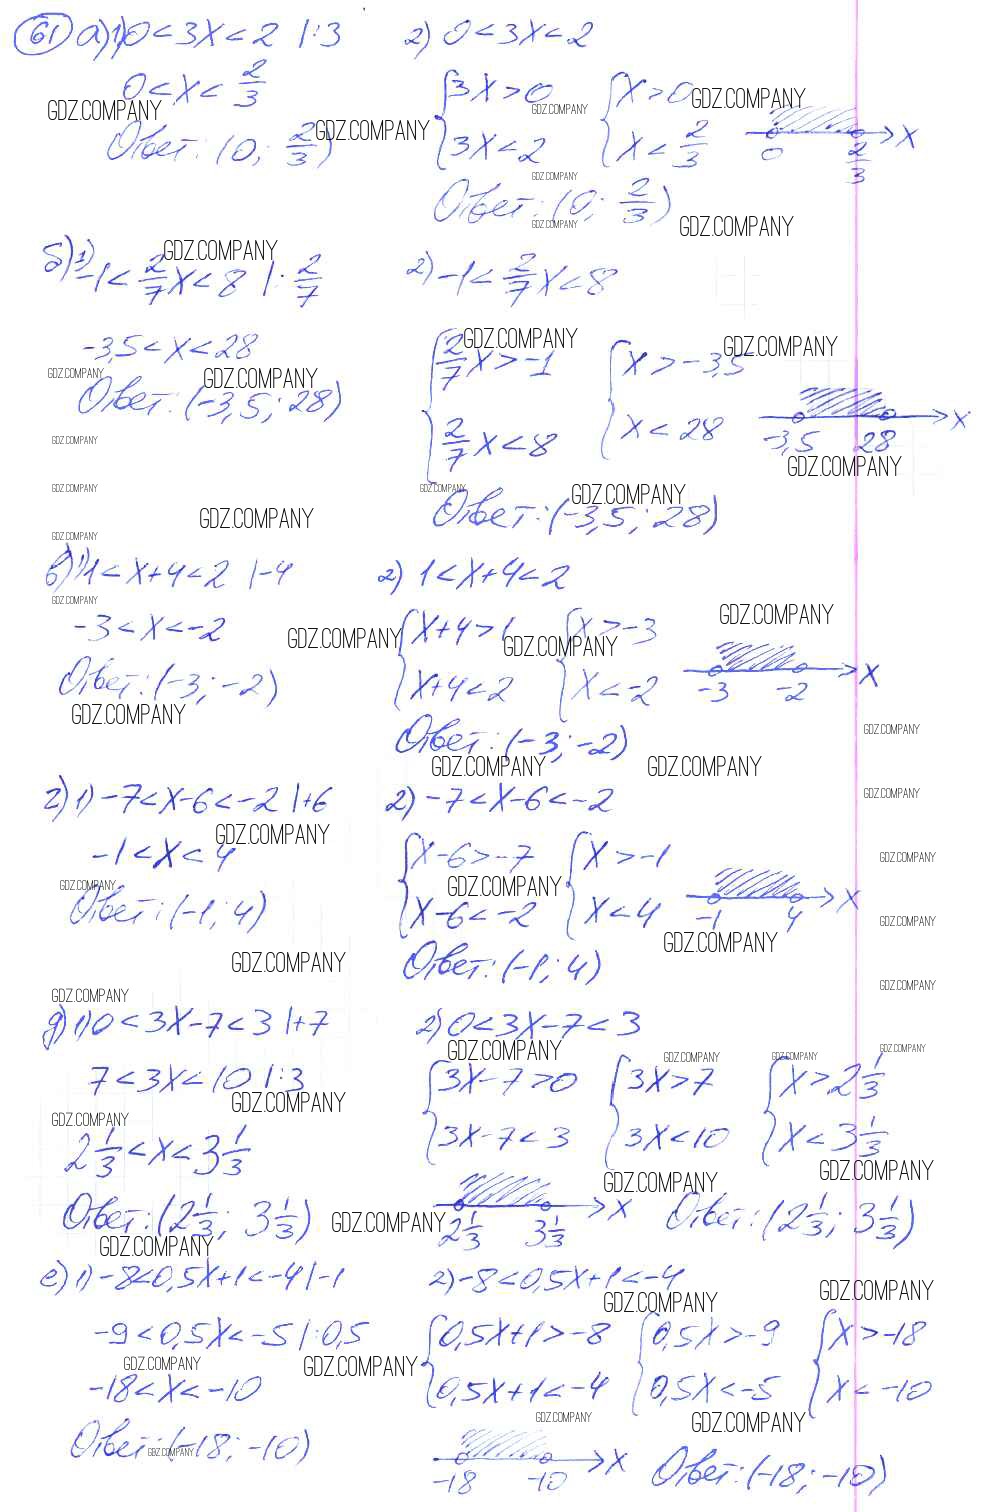 61 а) 1) 0 < 3x < 2 |:3
0 < x < 2/3
Ответ: (0; 2/3)
2) 0 < 3x < 2
{3x > 0 {x > 0
{3x < 2 {x < 2/3
0 2/3 x
Ответ: (0; 2/3)
б) 1) -1 < 2/7 x < 8 |: 2/7
-3,5 < x < 28
Ответ: (-3,5; 28)
2) -1 < 2/7 x < 8
{2/7 x > -1 {x > -3,5
{2/7 x < 8 {x < 28
-3,5 28 x
Ответ: (-3,5; 28)
в) 1) 1 < x+4 < 2 |-4
-3 < x < -2
Ответ: (-3; -2)
2) 1 < x+4 < 2
{x+4 > 1 {x > -3
{x+4 < 2 {x < -2
-3 -2 x
Ответ: (-3; -2)
г) 1) -7 < x-6 < -2 |+6
-1 < x < 4
Ответ: (-1; 4)
2) -7 < x-6 < -2
{x-6 > -7 {x > -1
{x-6 < -2 {x < 4
-1 4 x
Ответ: (-1; 4)
д) 1) 0 < 3x-7 < 3 |+7
7 < 3x < 10 |:3
2 1/3 < x < 3 1/3
Ответ: (2 1/3; 3 1/3)
2) 0 < 3x-7 < 3
{3x-7 > 0 {3x > 7 {x > 2 1/3
{3x-7 < 3 {3x < 10 {x < 3 1/3
2 1/3 3 1/3 x
Ответ: (2 1/3; 3 1/3)
е) 1) -8 < 0,5x+1 < -4 |-1
-9 < 0,5x < -5 |:0,5
-18 < x < -10
Ответ: (-18; -10)
2) -8 < 0,5x+1 < -4
{0,5x+1 > -8 {0,5x > -9 {x > -18
{0,5x+1 < -4 {0,5x < -5 {x < -10
-18 -10 x
Ответ: (-18; -10)
GDZ.COMPANY